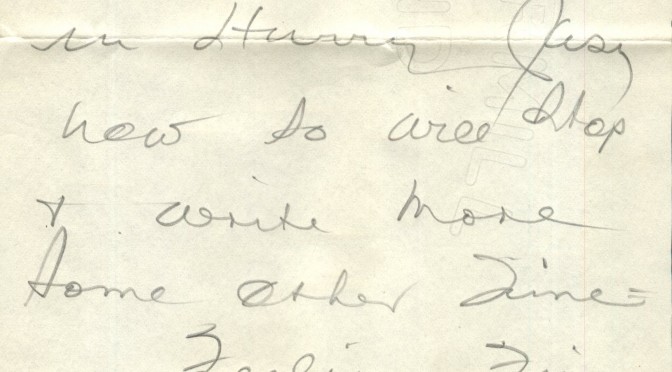 in Hurry
now so will stop
+ write more
some other time=